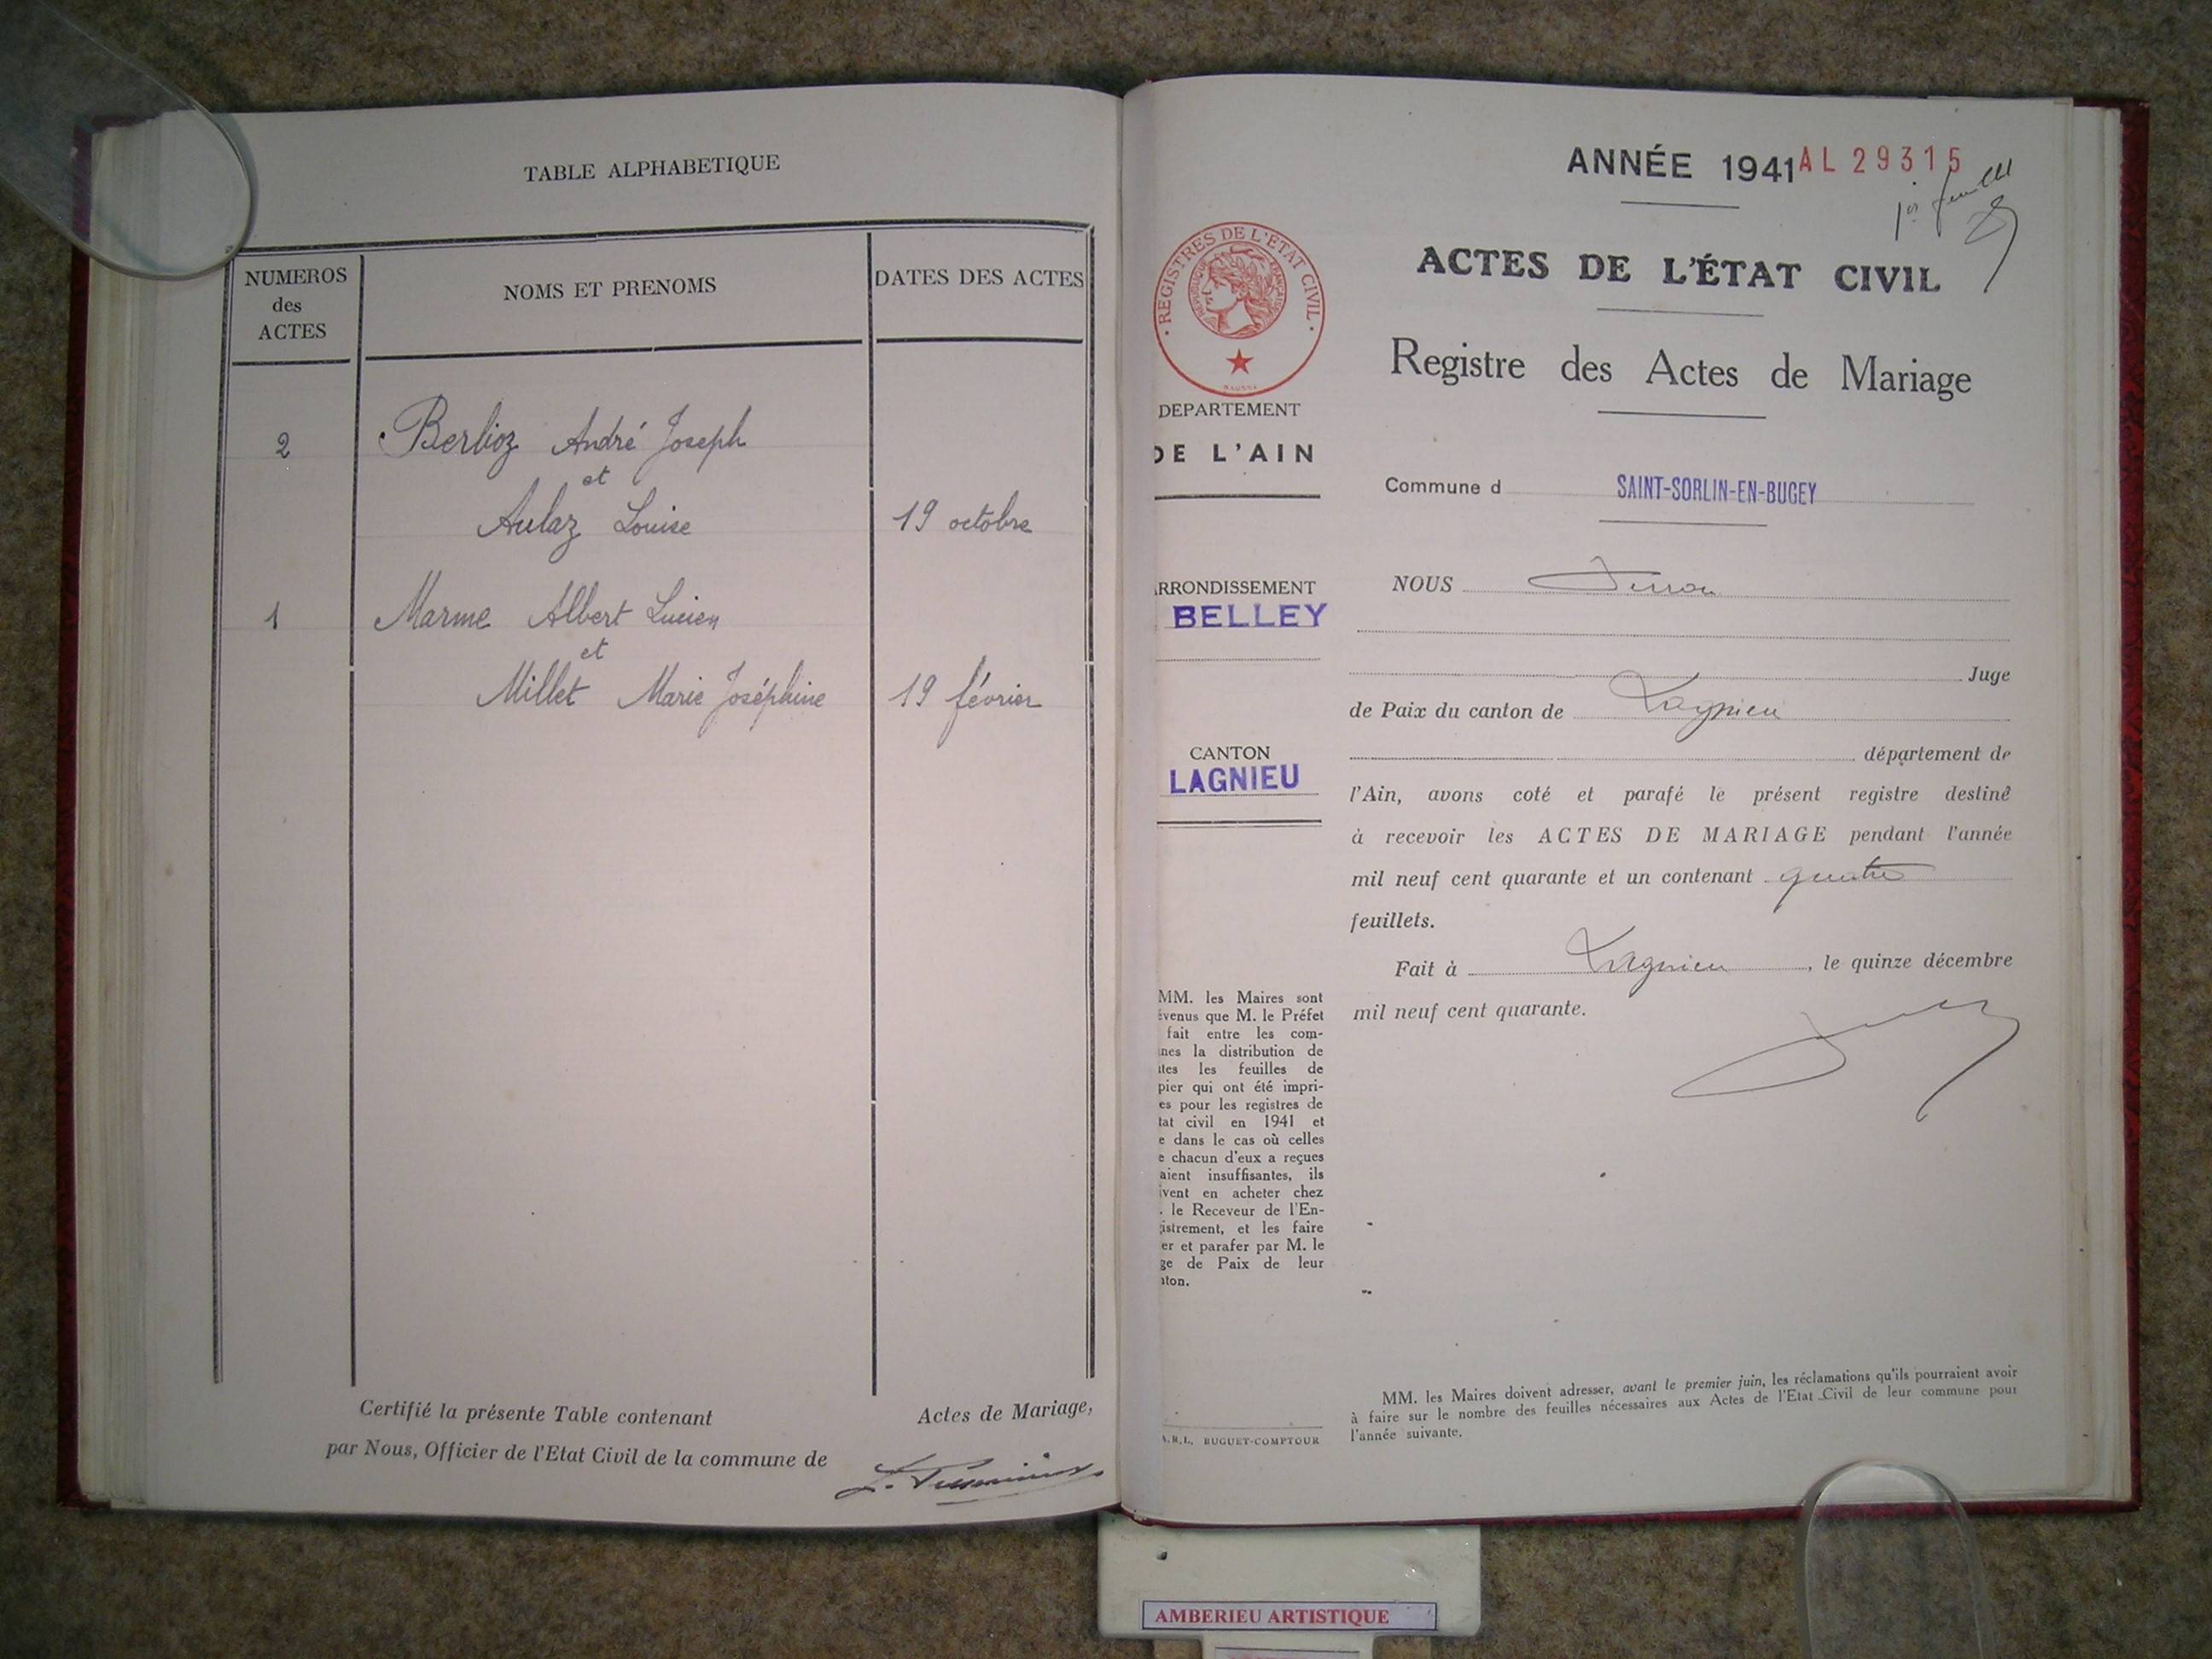 TABLE ALPHABETIQUE
NUMEROS
des
ACTES
NOMS ET PRENOMS
DATES DES ACTES
2 Berlioz André Joseph
et
Aulaz Louise 19 octobre
1 Marme Albert Lucien
et
Millet Marie Joséphine 19 février
Certifié la présente Table contenant Actes de Mariage,
par Nous, Officier de l'Etat Civil de la commune de
ANNÉE 1941 AL 29315
1er feuillet
REGISTRES DE L'ETAT CIVIL
REPUBLIQUE FRANÇAISE
DEPARTEMENT
DE L'AIN
RRONDISSEMENT
BELLEY
CANTON
LAGNIEU
MM. les Maires sont
évenus que M. le Préfet
fait entre les com-
nes la distribution de
ites les feuilles de
pier qui ont été impri-
es pour les registres de
tat civil en 1941 et
e dans le cas où celles
e chacun d'eux a reçues
aient insuffisantes, ils
ivent en acheter chez
. le Receveur de l'En-
gistrement, et les faire
er et parafer par M. le
ge de Paix de leur
nton.
A.R.L. BUGUET-COMPTOUR
ACTES DE L'ÉTAT CIVIL
Registre des Actes de Mariage
Commune d SAINT-SORLIN-EN-BUGEY
NOUS
Juge
de Paix du canton de Lagnieu
département de
l'Ain, avons coté et parafé le présent registre destiné
à recevoir les ACTES DE MARIAGE pendant l'année
mil neuf cent quarante et un contenant quatre
feuillets.
Fait à Lagnieu, le quinze décembre
mil neuf cent quarante.
MM. les Maires doivent adresser, avant le premier juin, les réclamations qu'ils pourraient avoir
à faire sur le nombre des feuilles nécessaires aux Actes de l'Etat Civil de leur commune pour
l'année suivante.
AMBERIEU ARTISTIQUE